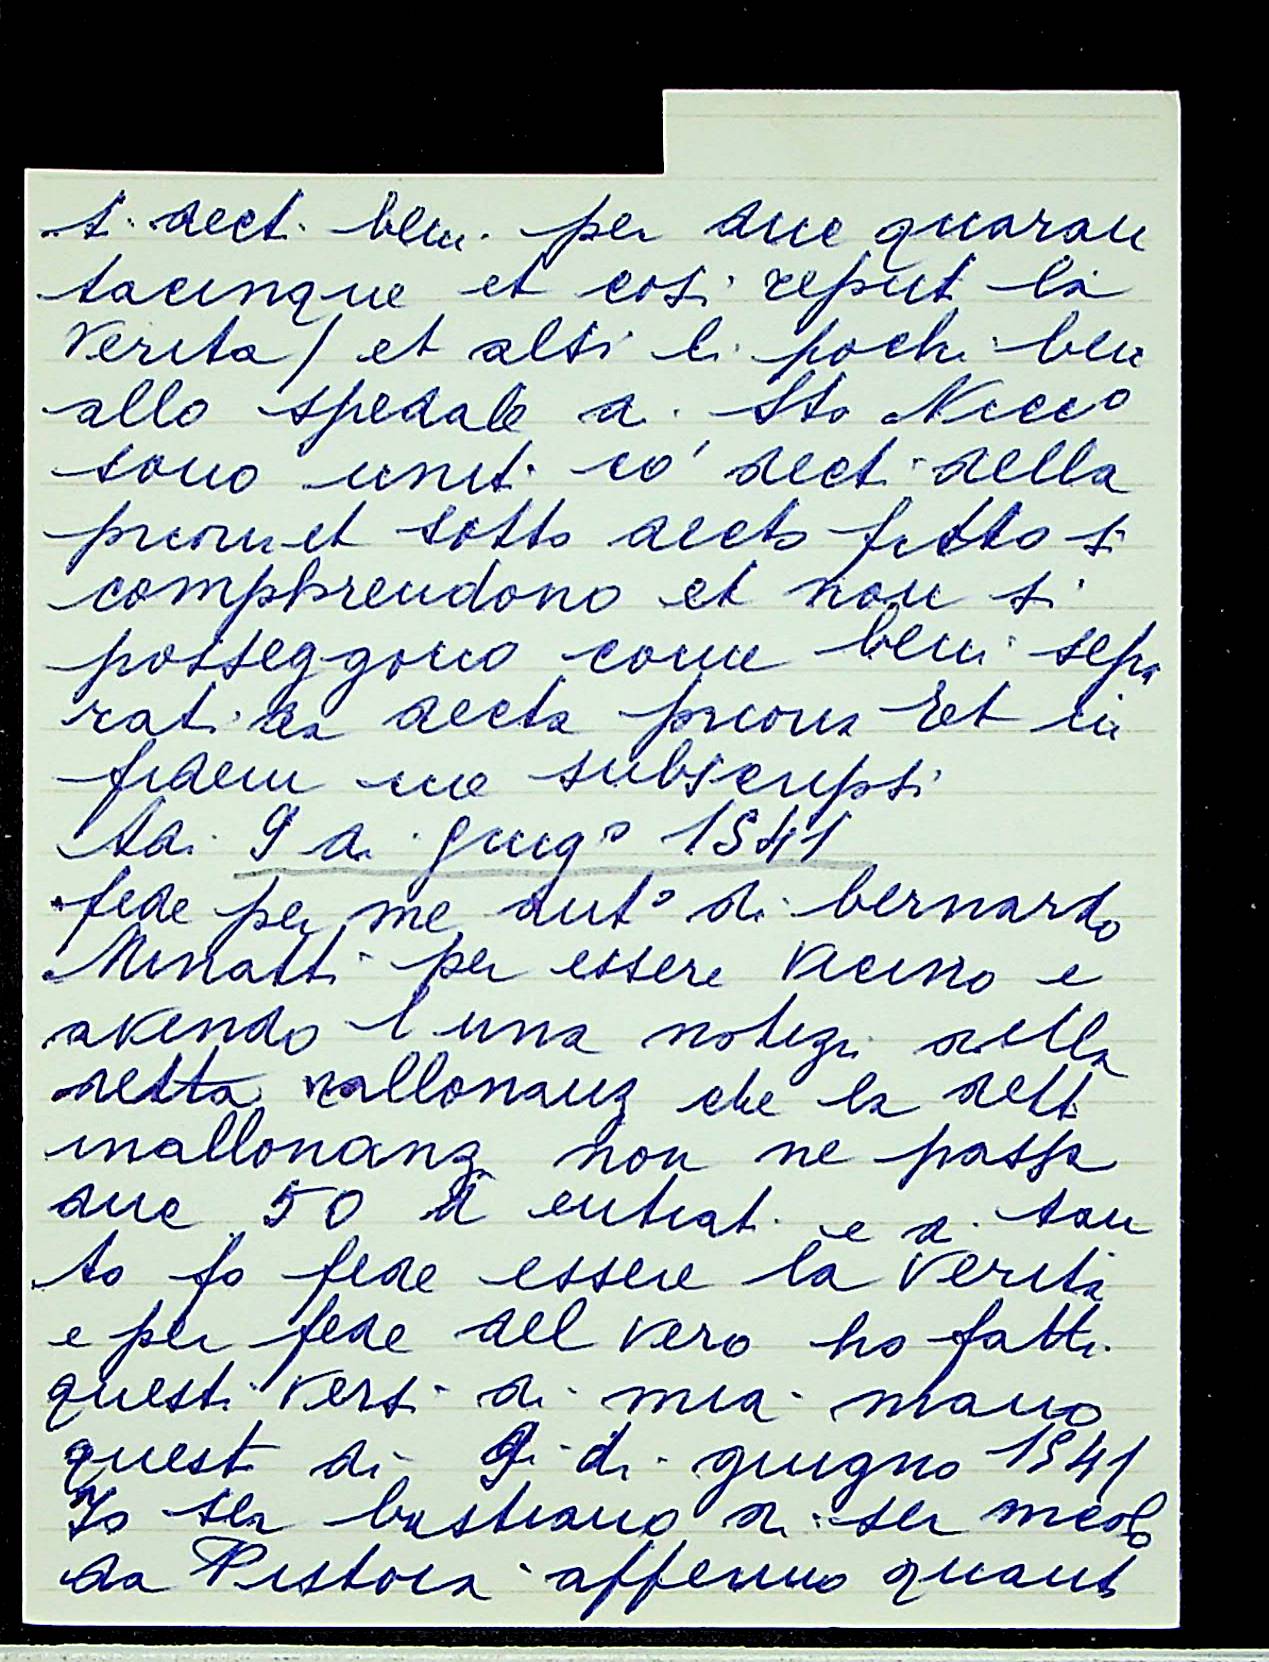 s. dect. beni. per duc quaran
tacinque et cosi reput la
verita / et altri li pochi beni
allo spedale di Sto Nicco
sono uniti co' decti della
prioria et sotto decto fitto si
comphrendono et non si
posseggono come beni sepa
rati da decta prioria Et in
fidem me subscripsi
Adi 9 di giugo 1541
fede per me anto di bernardo
Minatti per essere vicino e
avendo l una notizi della
detta vallonanz che la dett
mallonanz non ne passa
duc 50 d entrat. e di tan
to fo fede essere la verita
e per fede del vero ho fatti
questi versi di mia mano
questi di 9 di giugno 1541
Io ser bastiano di ser meo
da Pistoia affermo quanto